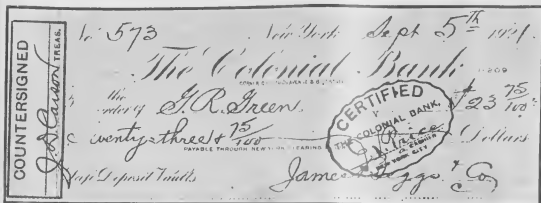 COUNTERSIGNED
J. D. Carson TREAS.
No 573 New York Sept 5th
The Colonial Bank
the order of G. R. Green $23 75/100
wenty-three & 75/100 Dollars
PAYABLE THROUGH NEW YORK CLEARING
CERTIFIED
THE COLONIAL BANK,
Price
CASHIER
NEW YORK CITY
Deposit Vaults James & Co